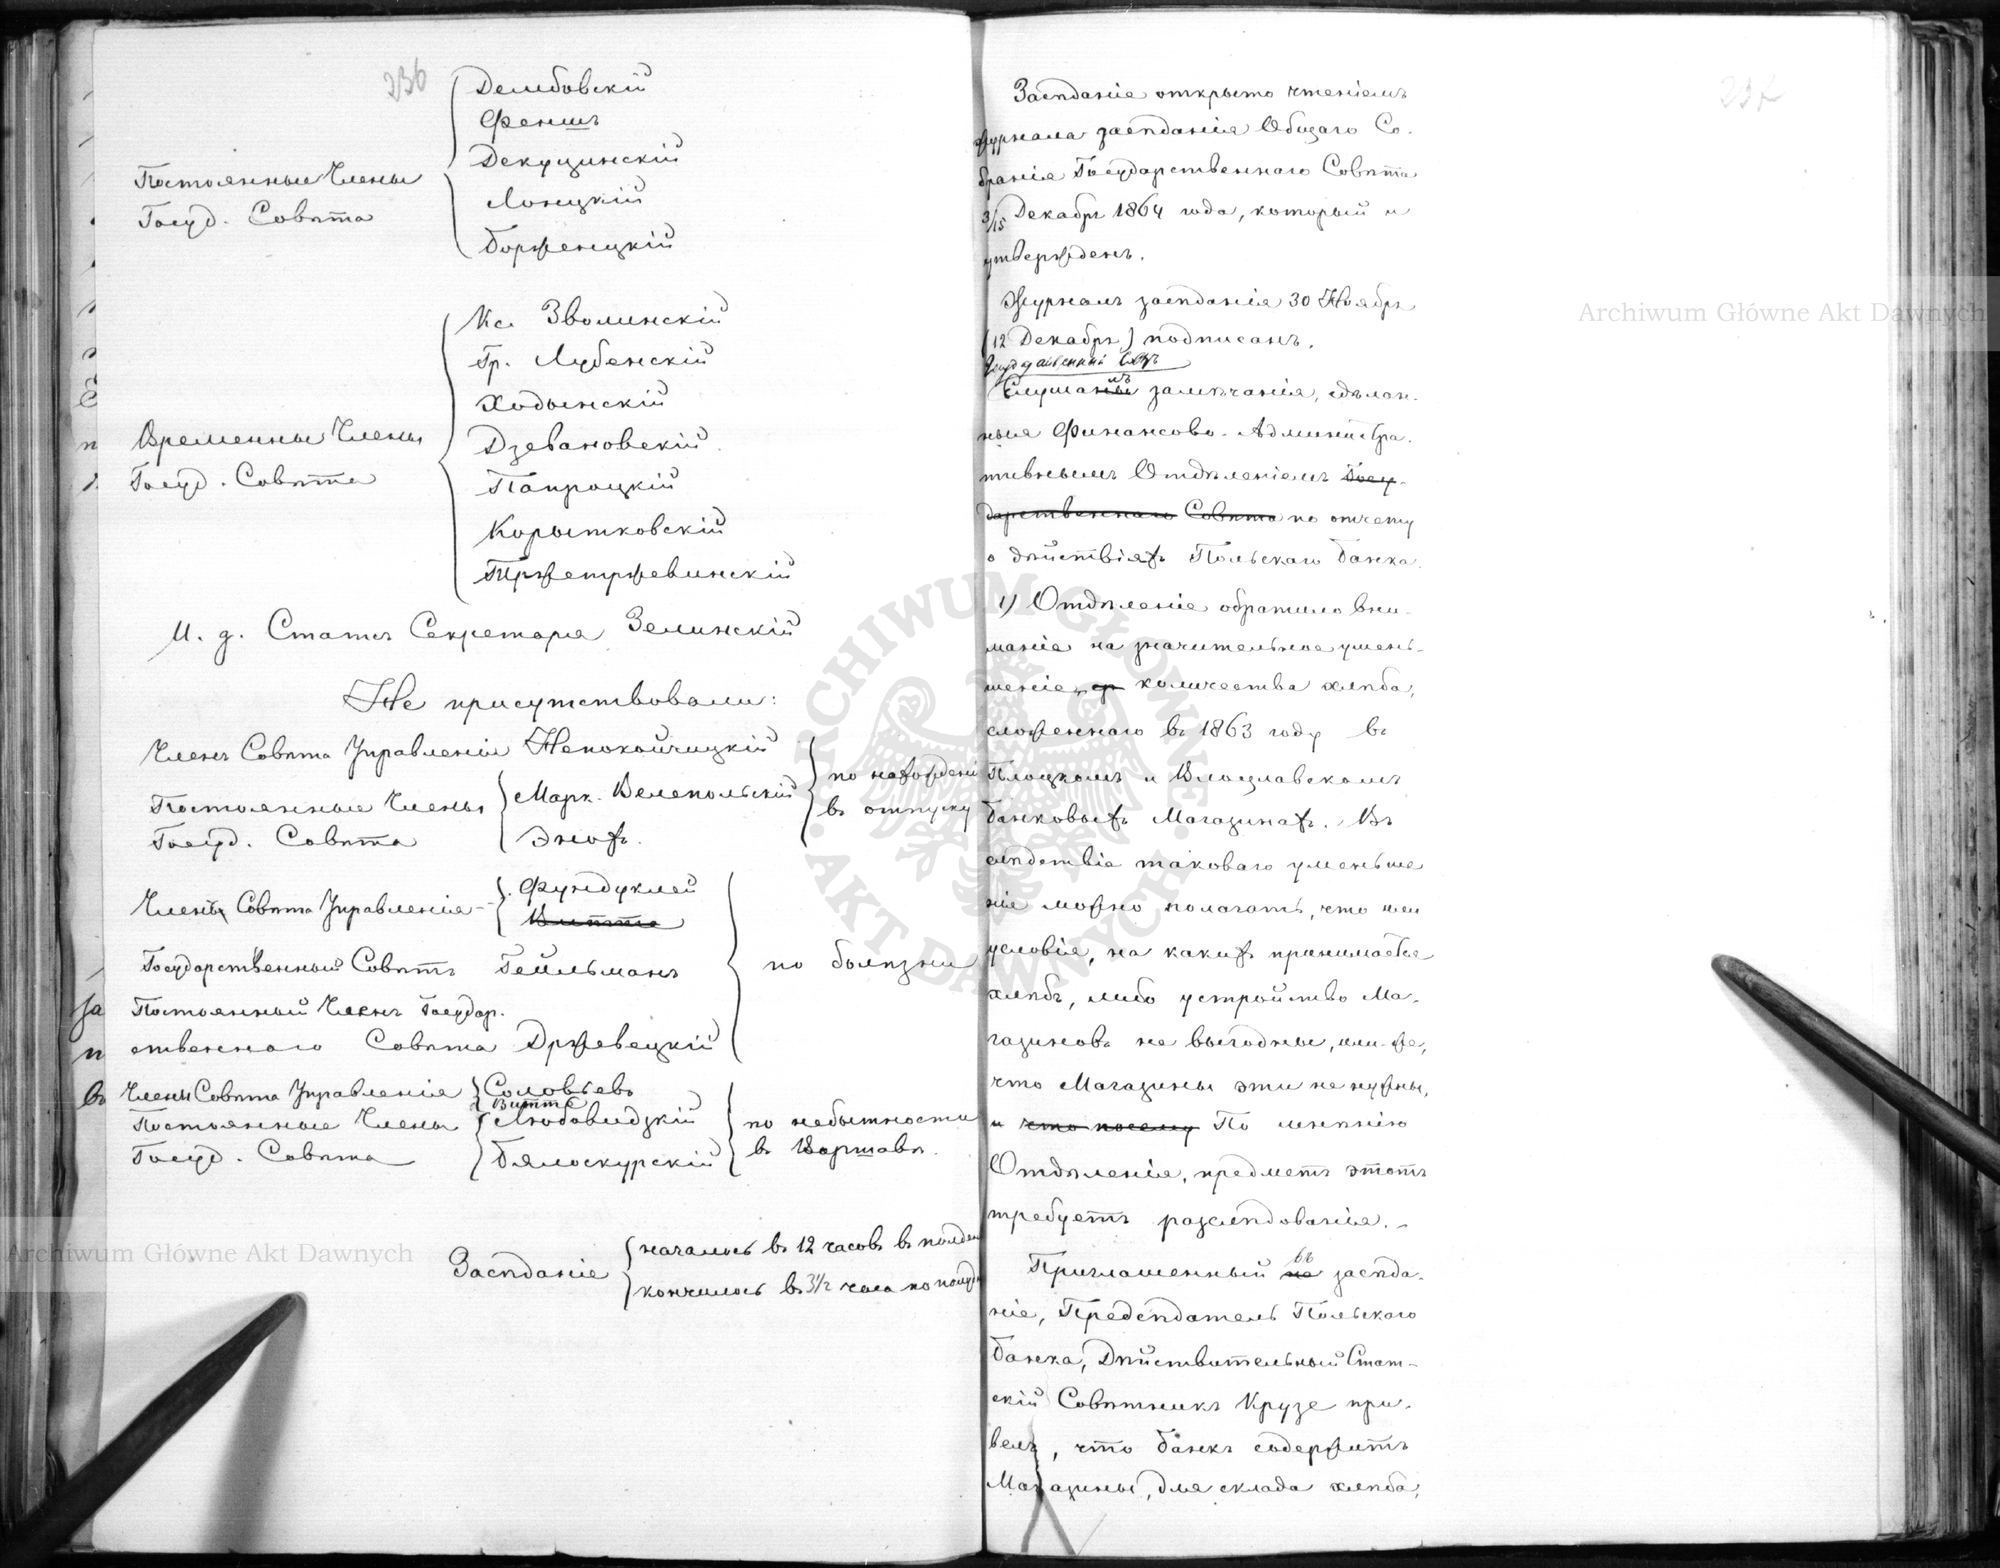 236
Постоянные Члены
Госуд. Совѣта
Дембовскій
Феншъ
Декуцинскій
Лонцкій
Борженцкій
Временные Члены
Госуд. Совѣта
Кс. Зволинскій
Гр. Лубенскій
Ходынскій
Дзевановскій
Папроцкій
Корытковскій
Тржетржевинскій
И. д. Статсъ Секретаря Зелинскій
Не присутствовали:
Членъ Совѣта Управленія Непокойчицкій
Постоянные Члены
Госуд. Совѣта
Марк. Велепольскій
Энохъ.
по нахожденію
въ отпуску
Членъ Совѣта Управленія
Фундуклей
Витте
Государственный Совѣтъ Гейльманъ
Постоянный Членъ Государ.
ственнаго Совѣта Држевецкій
по болѣзни
Члены Совѣта Управленія Соловьевъ
Витте
Постоянные Члены
Госуд. Совѣта
Любовидзкій
Бялоскурскій
по небытности
въ Варшавѣ.
Засѣданіе
началось въ 12 часовъ въ полдень
кончилось въ 3½ часа по полуд
237
Засѣданіе открыто чтеніемъ
журнала засѣданія Общаго Со-
бранія Государственнаго Совѣта
3/15 Декабря 1864 года, который и
утвержденъ.
Журналъ засѣданія 30 Ноября
(12 Декабря) подписанъ.
Государственный Совѣтъ
Слушалъ замѣчанія, сдѣлан-
ныя Финансово-Администра-
тивнымъ Отдѣленіемъ Госу-
дарственнаго Совѣта по отчету
о дѣйствіяхъ Польскаго Банка.
1) Отдѣленіе обратило вни-
маніе на значительное умень-
шеніе количества хлѣба,
сложеннаго въ 1863 году въ
Плоцкомъ и Влоцлавскомъ
Банковыхъ Магазинахъ. Въ
слѣдствіе таковаго уменьше
нія можно полагать, что или
условія, на какихъ принимается
хлѣбъ, либо устройство Ма-
газиновъ не выгодны, или-же,
что Магазины эти не нужны,
и что посему По мнѣнію
Отдѣленія, предметъ этотъ
требуетъ разслѣдованія. –
Приглашенный въ засѣда-
ніе, Предсѣдатель Польскаго
Банка, Дѣйствительный Стат-
скій Совѣтникъ Крузе при-
велъ, что Банкъ содержитъ
Магазины, для склада хлѣба,
Archiwum Główne Akt Dawnych
Archiwum Główne Akt Dawnych
ARCHIWUM GŁÓWNE
AKT DAWNYCH